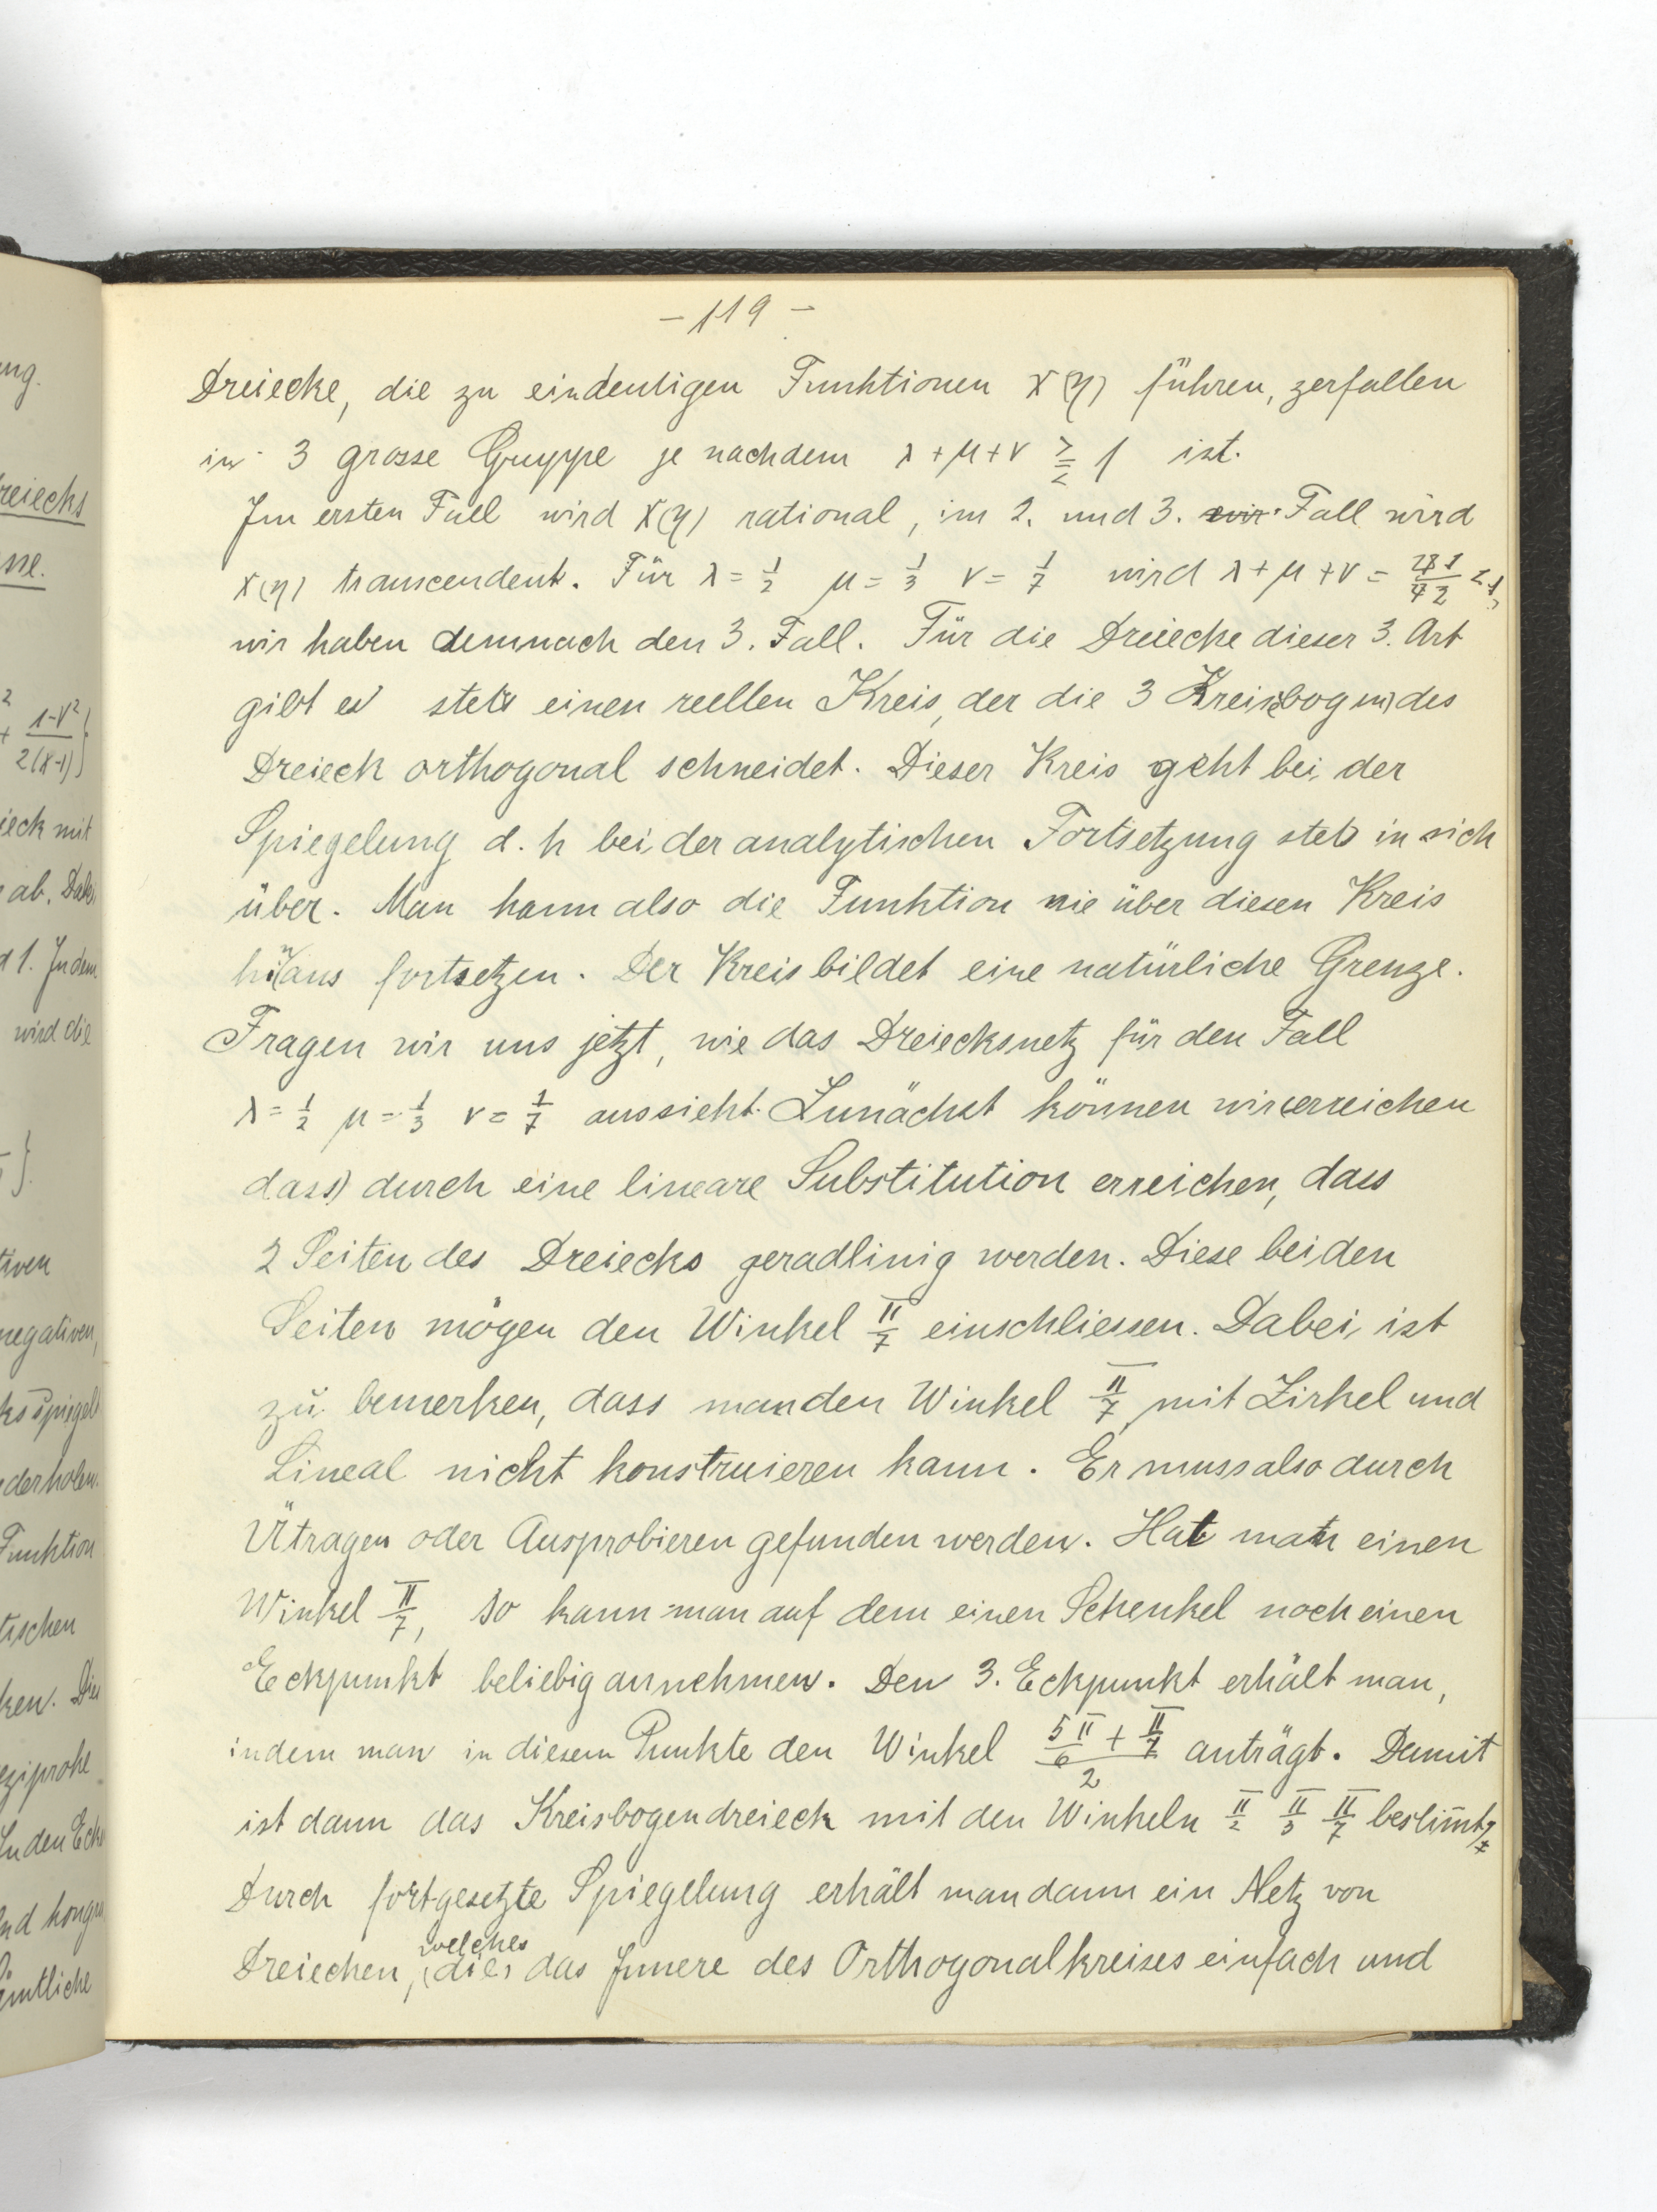 - 119 -
Dreiecke, die zu eindeutigen Funktionen x(η) führen, zerfallen
in 3 grosse Gruppe je nachdem λ + μ + ν ⪌ 1 ist.
Im ersten Fall wird x(η) rational, im 2. und 3. wir Fall wird
x(η) transcendent. Für λ = 1/2 μ = 1/3 ν = 1/7 wird λ + μ + ν = 41/42 < 1,
wir haben demnach den 3. Fall. Für die Dreiecke dieser 3. Art
gibt es stets einen reellen Kreis, der die 3 Kreisbogen des
Dreieck orthogonal schneidet. Dieser Kreis geht bei der
Spiegelung d. h bei der analytischen Fortsetzung stets in sich
über. Man kann also die Funktion nie über diesen Kreis
hinaus fortsetzen. Der Kreis bildet eine natürliche Grenze.
Fragen wir uns jetzt, wie das Dreiecksnetz für den Fall
λ = 1/2 μ = 1/3 ν = 1/7 aussieht. Zunächst können wir (erreichen
dass) durch eine lineare Substitution erreichen, dass
2 Seiten des Dreiecks geradlinig werden. Diese beiden
Seiten mögen den Winkel π/7 einschliessen. Dabei ist
zu bemerken, dass man den Winkel π/7 mit Zirkel und
Lineal nicht konstruieren kann. Er muss also durch
oder Ausprobieren gefunden werden. Hat man einen
Winkel π/7, so kann man auf dem einen Schenkel noch einen
Eckpunkt beliebig annehmen. Den 3. Eckpunkt erhält man,
indem man in diesem Punkte den Winkel (5π/6 + π/7)/2 anträgt. Damit
ist dann das Kreisbogendreieck mit den Winkeln π/2 π/3 π/7 bestim̄t
Durch fortgesetzte Spiegelung erhält man dann ein Netz von
Dreiecken, (die) welches das Innere des Orthogonalkreises einfach und
ung.
reiecks
sse.
1-ν²
2(x-1)
ieck mit
ab. Dabei
1. Indem
wird die
tiven
negativen,
ks spiegelt
derholen.
Funktion
tischen
ken. Die
eziproke
In den Ecke
nd kongru
ämtliche